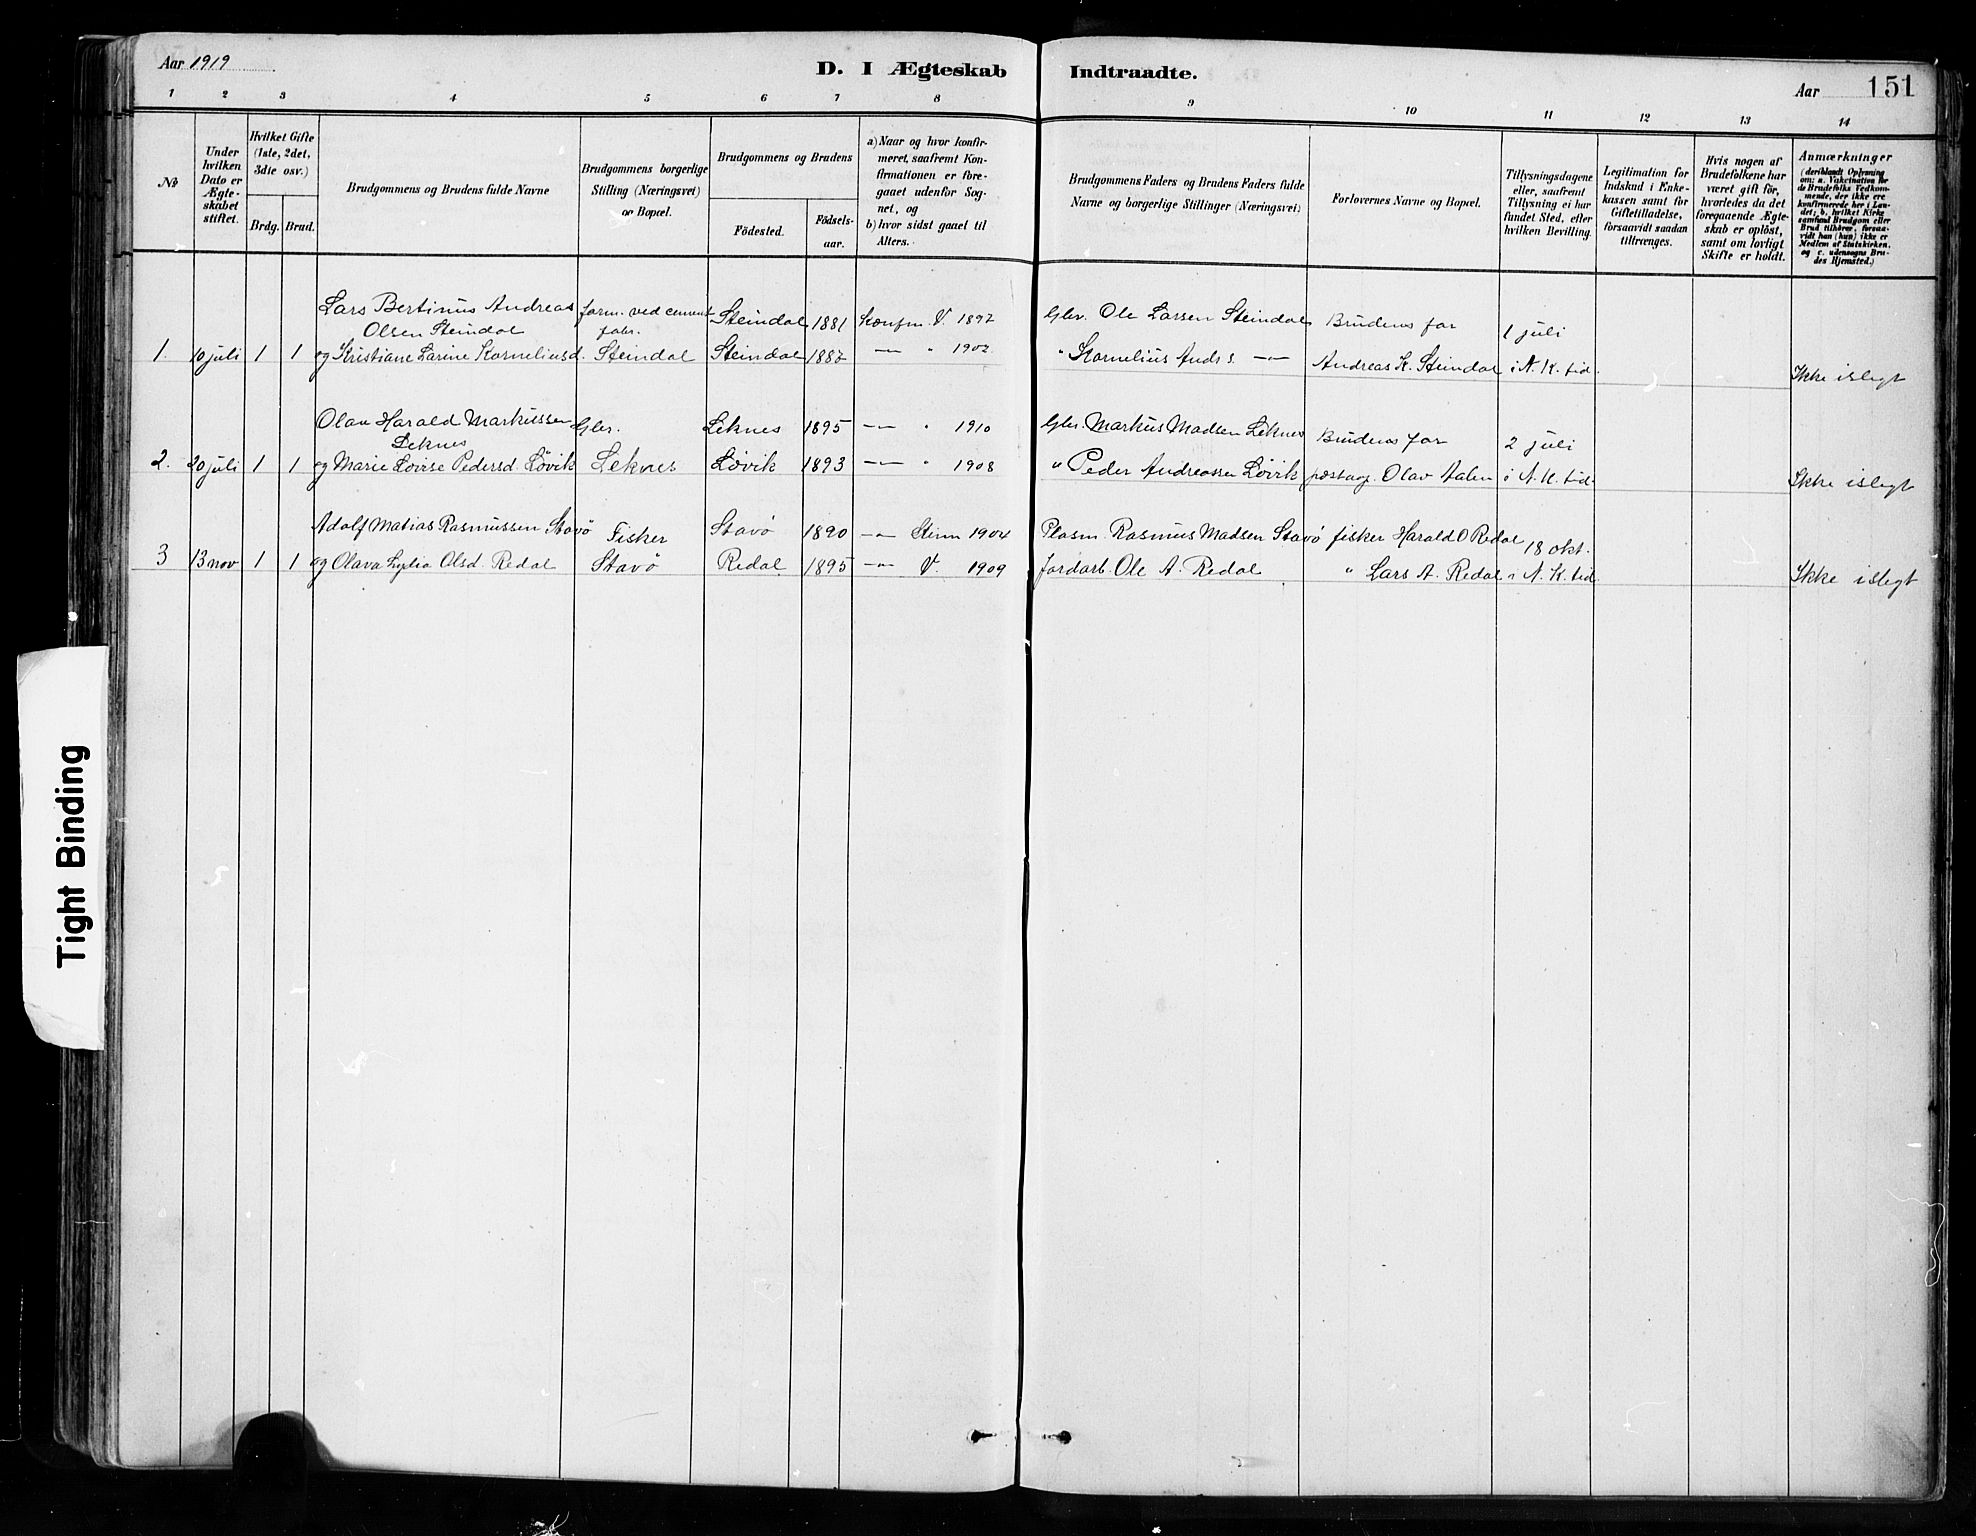 Aar 1919
D. I Ægteskab
Indtraadte.
Aar 151
1 2 3 4 5 6 7 8
9 10 11 12 13 14
№
Under hvilken Dato er Ægteskabet stiftet.
Hvilket Gifte (1ste, 2det, 3die osv.)
Brdg. Brud.
Brudgommens og Brudens fulde Navne
Brudgommens borgerlige Stilling (Næringsvei) og Bopæl.
Brudgommens og Brudens
Fødested.
Fødselsaar.
a) Naar og hvor konfirmeret, saafremt Konfirmationen er foregaaet udenfor Sognet, og
b) hvor sidst gaaet til Alters.
Brudgommens Faders og Brudens Faders fulde Navne og borgerlige Stillinger (Næringsvei)
Forlovernes Navne og Bopæl.
Tillysningsdagene eller, saafremt Tillysning ei har fundet Sted, efter hvilken Bevilling.
Legitimation for Indskud i Enkekassen samt for Giftetilladelse, forsaavidt saadan tiltrænges.
Hvis nogen af Brudefolkene har været gift før, hvorledes da det foregaaende Ægteskab er opløst, samt om lovligt Skifte er holdt.
Anmærkninger (deriblandt Oplysning om: a. Vakcination for de Brudefolks Vedkommende, der ikke ere konfirmerede her i Landet; b. hvilket Kirkesamfund Brudgom eller Brud tilhører, forsaavidt han (hun) ikke er Medlem af Statskirken, og c. udensogns Brudes Hjemsted.)
Lars Bertinus Andreas form. ved cement Steindal 1881 Konfm. V. 1897 Gbr. Ole Larsen Steindal Brudens far 1 juli
Olsen Steindal fabr.
1. 10 juli 1 1 og Kristiane Larine Korneliusd. Steindal Steindal 1887 — " 1902 " Kornelius Ands. — Andreas K. Steindal i N. K. tid. Ikke islegt
Olav Harald Markussen Gbr. Leknes 1895 — " 1910 Gbr. Markus Madsen Leknes Brudens far 2 juli
Leknes
2. 20 juli 1 1 og Marie Lovise Pedersd. Løvik Leknes Løvik 1893 — " 1908 " Peder Andreassen Løvik postaop. Olav Aalen i N. K. tid. Ikke islegt
Adolf Matias Rasmussen Stavø Fisker Stavø 1890 — 1904 Plasm. Rasmus Madsen Stavø fisker Harald O Redal 18 okt.
3 13 nov 1 1 og Olava Olsd. Redal Stavø Redal 1895 — V. 1909 Jordarb. Ole A. Redal " Lars A. Redal i N. K. tid Ikke islegt
Tight Binding